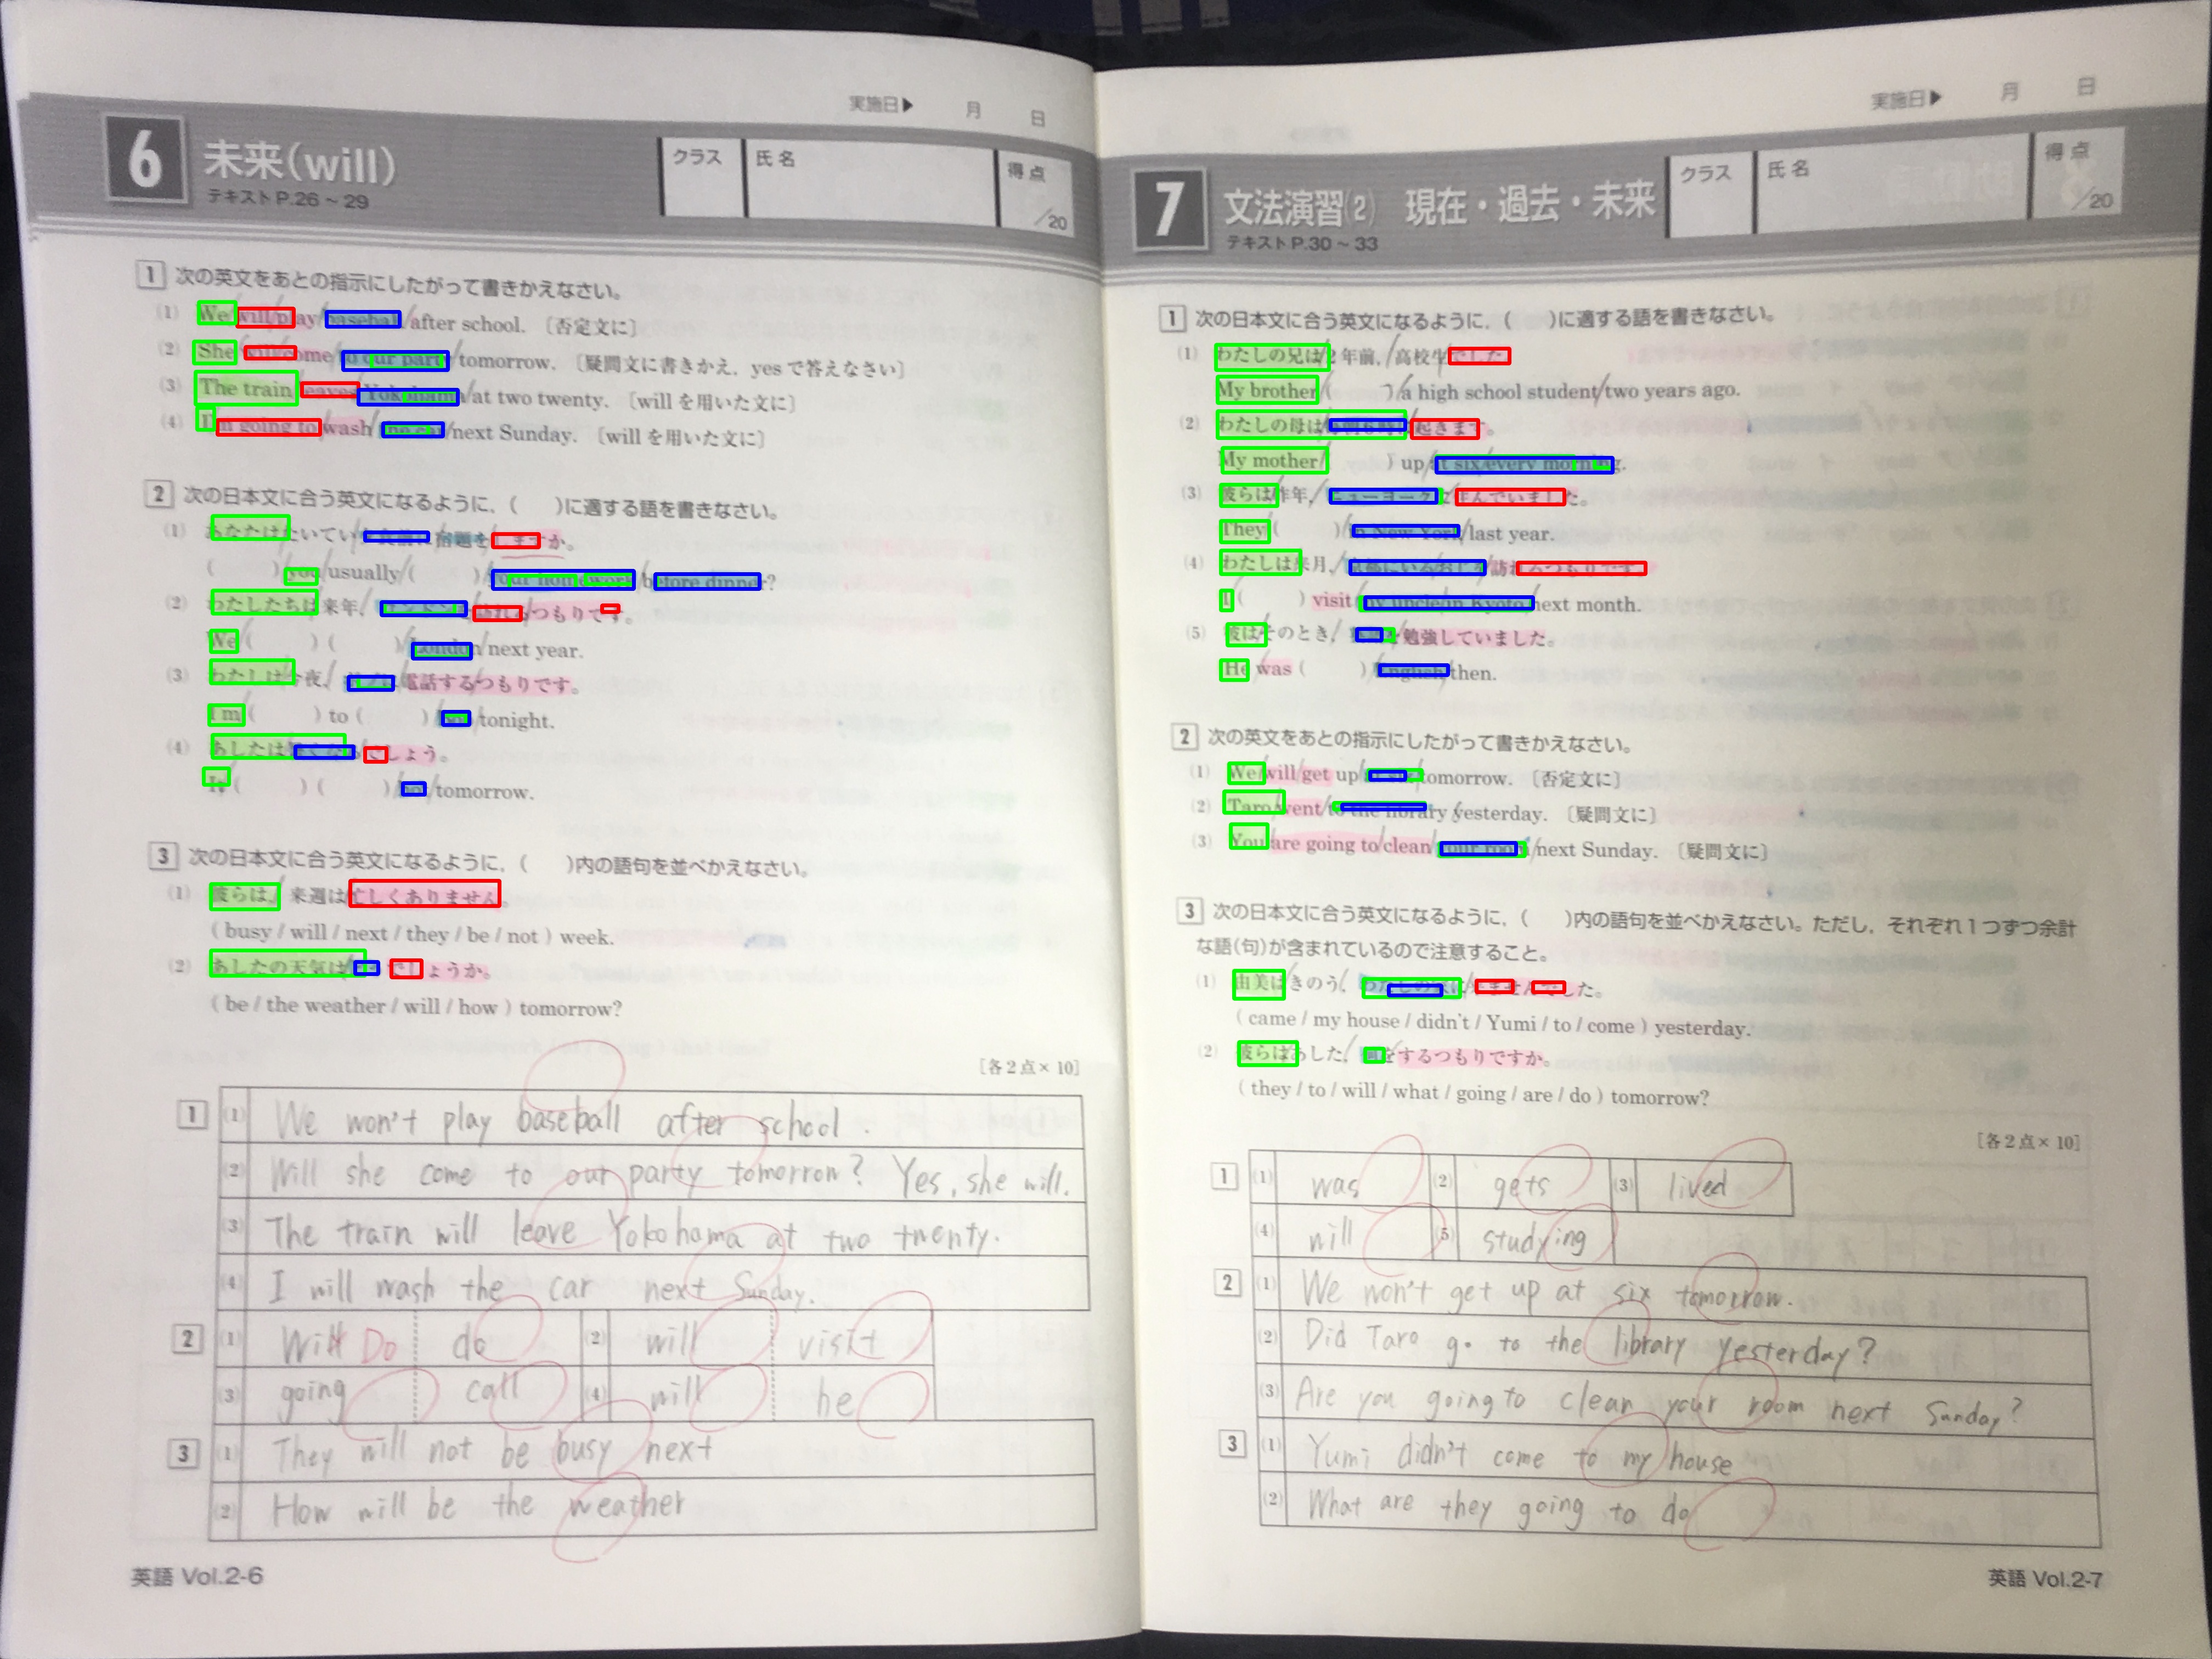 実施日▶ 月 日
6 未来(will)
テキストP.26～29
クラス 氏名 得点 /20
1 次の英文をあとの指示にしたがって書きかえなさい。
(1) We/will/play/baseball/after school. 〔否定文に〕
(2) She/will/come/to our party/tomorrow. 〔疑問文に書きかえ, yesで答えなさい〕
(3) The train/leaves/Yokohama/at two twenty. 〔willを用いた文に〕
(4) I'm going to/wash/the car/next Sunday. 〔willを用いた文に〕
2 次の日本文に合う英文になるように, ( )に適する語を書きなさい。
(1) あなたはたいてい/夕食前に/宿題をしますか。
( )/you/usually/( )/your homework/before dinner?
(2) わたしたちは来年,/ロンドンを訪れるつもりです。
We ( ) ( )/London/next year.
(3) わたしは今夜,/ に電話するつもりです。
I'm ( ) to ( )/ /tonight.
(4) あしたは/ でしょう。
It ( ) ( )/hot/tomorrow.
3 次の日本文に合う英文になるように, ( )内の語句を並べかえなさい。
(1) 彼らは,/来週は忙しくありません。
( busy / will / next / they / be / not ) week.
(2) あしたの天気は/ でしょうか。
( be / the weather / will / how ) tomorrow?
[各2点×10]
1 (1) We won't play baseball after school.
(2) Will she come to our party tomorrow? Yes, she will.
(3) The train will leave Yokohama at two twenty.
(4) I will wash the car next Sunday.
2 (1) Will Do do (2) will visit
(3) going call (4) will be
3 (1) They will not be busy next
(2) How will be the weather
英語 Vol.2-6
実施日▶ 月 日
7 文法演習(2) 現在・過去・未来
テキストP.30～33
クラス 氏名 得点 /20
1 次の日本文に合う英文になるように, ( )に適する語を書きなさい。
(1) わたしの兄は/2年前,/高校生でした。
My brother ( )/a high school student/two years ago.
(2) わたしの母は/毎朝6時に/起きます。
My mother/( ) up/at six/every morning.
(3) 彼らは/昨年,/ニューヨークに住んでいました。
They ( )/in New York/last year.
(4) わたしは来月,/京都にいるおじを/訪れるつもりです。
I ( ) visit/my uncle in Kyoto/next month.
(5) 彼は/そのとき,/英語を/勉強していました。
He was ( )/English/then.
2 次の英文をあとの指示にしたがって書きかえなさい。
(1) We/will/get up/at six/tomorrow. 〔否定文に〕
(2) Taro/went/to the library/yesterday. 〔疑問文に〕
(3) You/are going to/clean/your room/next Sunday. 〔疑問文に〕
3 次の日本文に合う英文になるように, ( )内の語句を並べかえなさい。ただし, それぞれ1つずつ余計
な語(句)が含まれているので注意すること。
(1) 由美は/きのう,/わたしの家に/来ませんでした。
( came / my house / didn't / Yumi / to / come ) yesterday.
(2) 彼らは/あした,/何をするつもりですか。
( they / to / will / what / going / are / do ) tomorrow?
[各2点×10]
1 (1) was (2) gets (3) lived
(4) will (5) studying
2 (1) We won't get up at six tomorrow.
(2) Did Taro go to the library yesterday?
(3) Are you going to clean your room next Sunday?
3 (1) Yumi didn't come to my house
(2) What are they going to do
英語 Vol.2-7